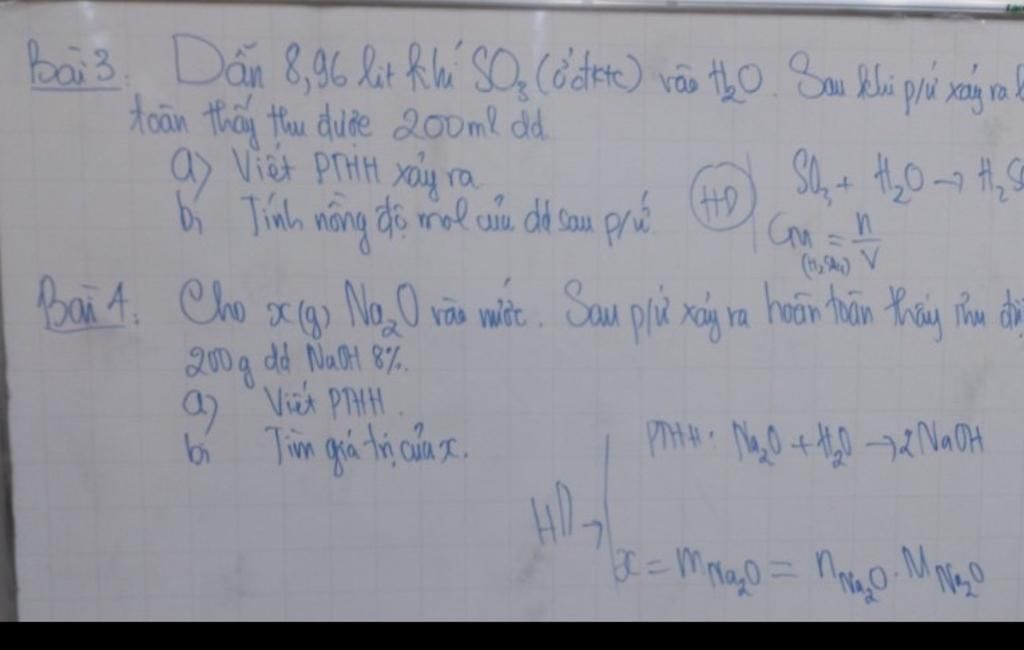 Bài 3: Dẫn 8,96 lit khí SO₃ (ở đktc) vào H₂O. Sau khi p/ứ xảy ra
toàn thấy thu được 200ml dd
a) Viết PTHH xảy ra
b) Tính nồng độ mol của dd sau p/ứ.
HD
SO₃ + H₂O → H₂
CM (H₂SO₄) = n/V
Bài 4: Cho x(g) Na₂O vào nước. Sau p/ứ xảy ra hoàn toàn thấy thu
200g dd NaOH 8%.
a) Viết PTHH.
b) Tìm giá trị của x.
PTHH: Na₂O + H₂O → 2NaOH
HD →
x = mNa₂O = nNa₂O . MNa₂O